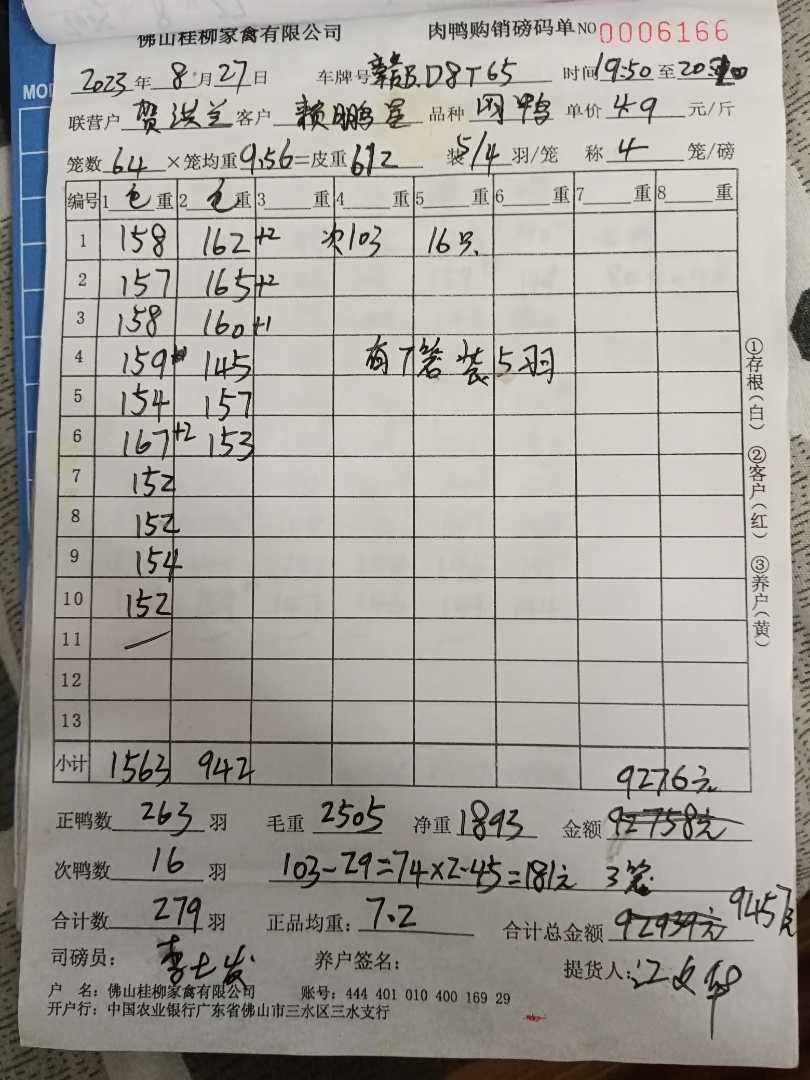 佛山桂柳家禽有限公司 肉鸭购销磅码单 NO 0006166
2023年8月27日 车牌号 D8T65 时间19:50至20:
联营户 贺洪兰 客户 赖鹏星 品种 肉鸭 单价 4.9 元/斤
笼数 64 ×笼均重9.56=皮重612 装5/4羽/笼 称 4 笼/磅
编号 1 毛 重 2 毛 重 3 重 4 重 5 重 6 重 7 重 8 重
1 158 162+2 次103 16只
2 157 165+2
3 158 160+1
4 159 145 有7笼装5羽
5 154 157
6 167+2 153
7 152
8 152
9 154
10 152
11
12
13
小计 1563 942
9276元
正鸭数 263 羽 毛重 2505 净重 1893 金额 92758元
次鸭数 16 羽 103-29=74×2.45=181元 3笼
合计数 279 羽 正品均重: 7.2 合计总金额 92939元 9457元
司磅员: 李七发 养户签名: 提货人: 江文华
户 名: 佛山桂柳家禽有限公司 账号: 444 401 010 400 169 29
开户行: 中国农业银行广东省佛山市三水区三水支行
①存根(白) ②客户(红) ③养户(黄)
MOD